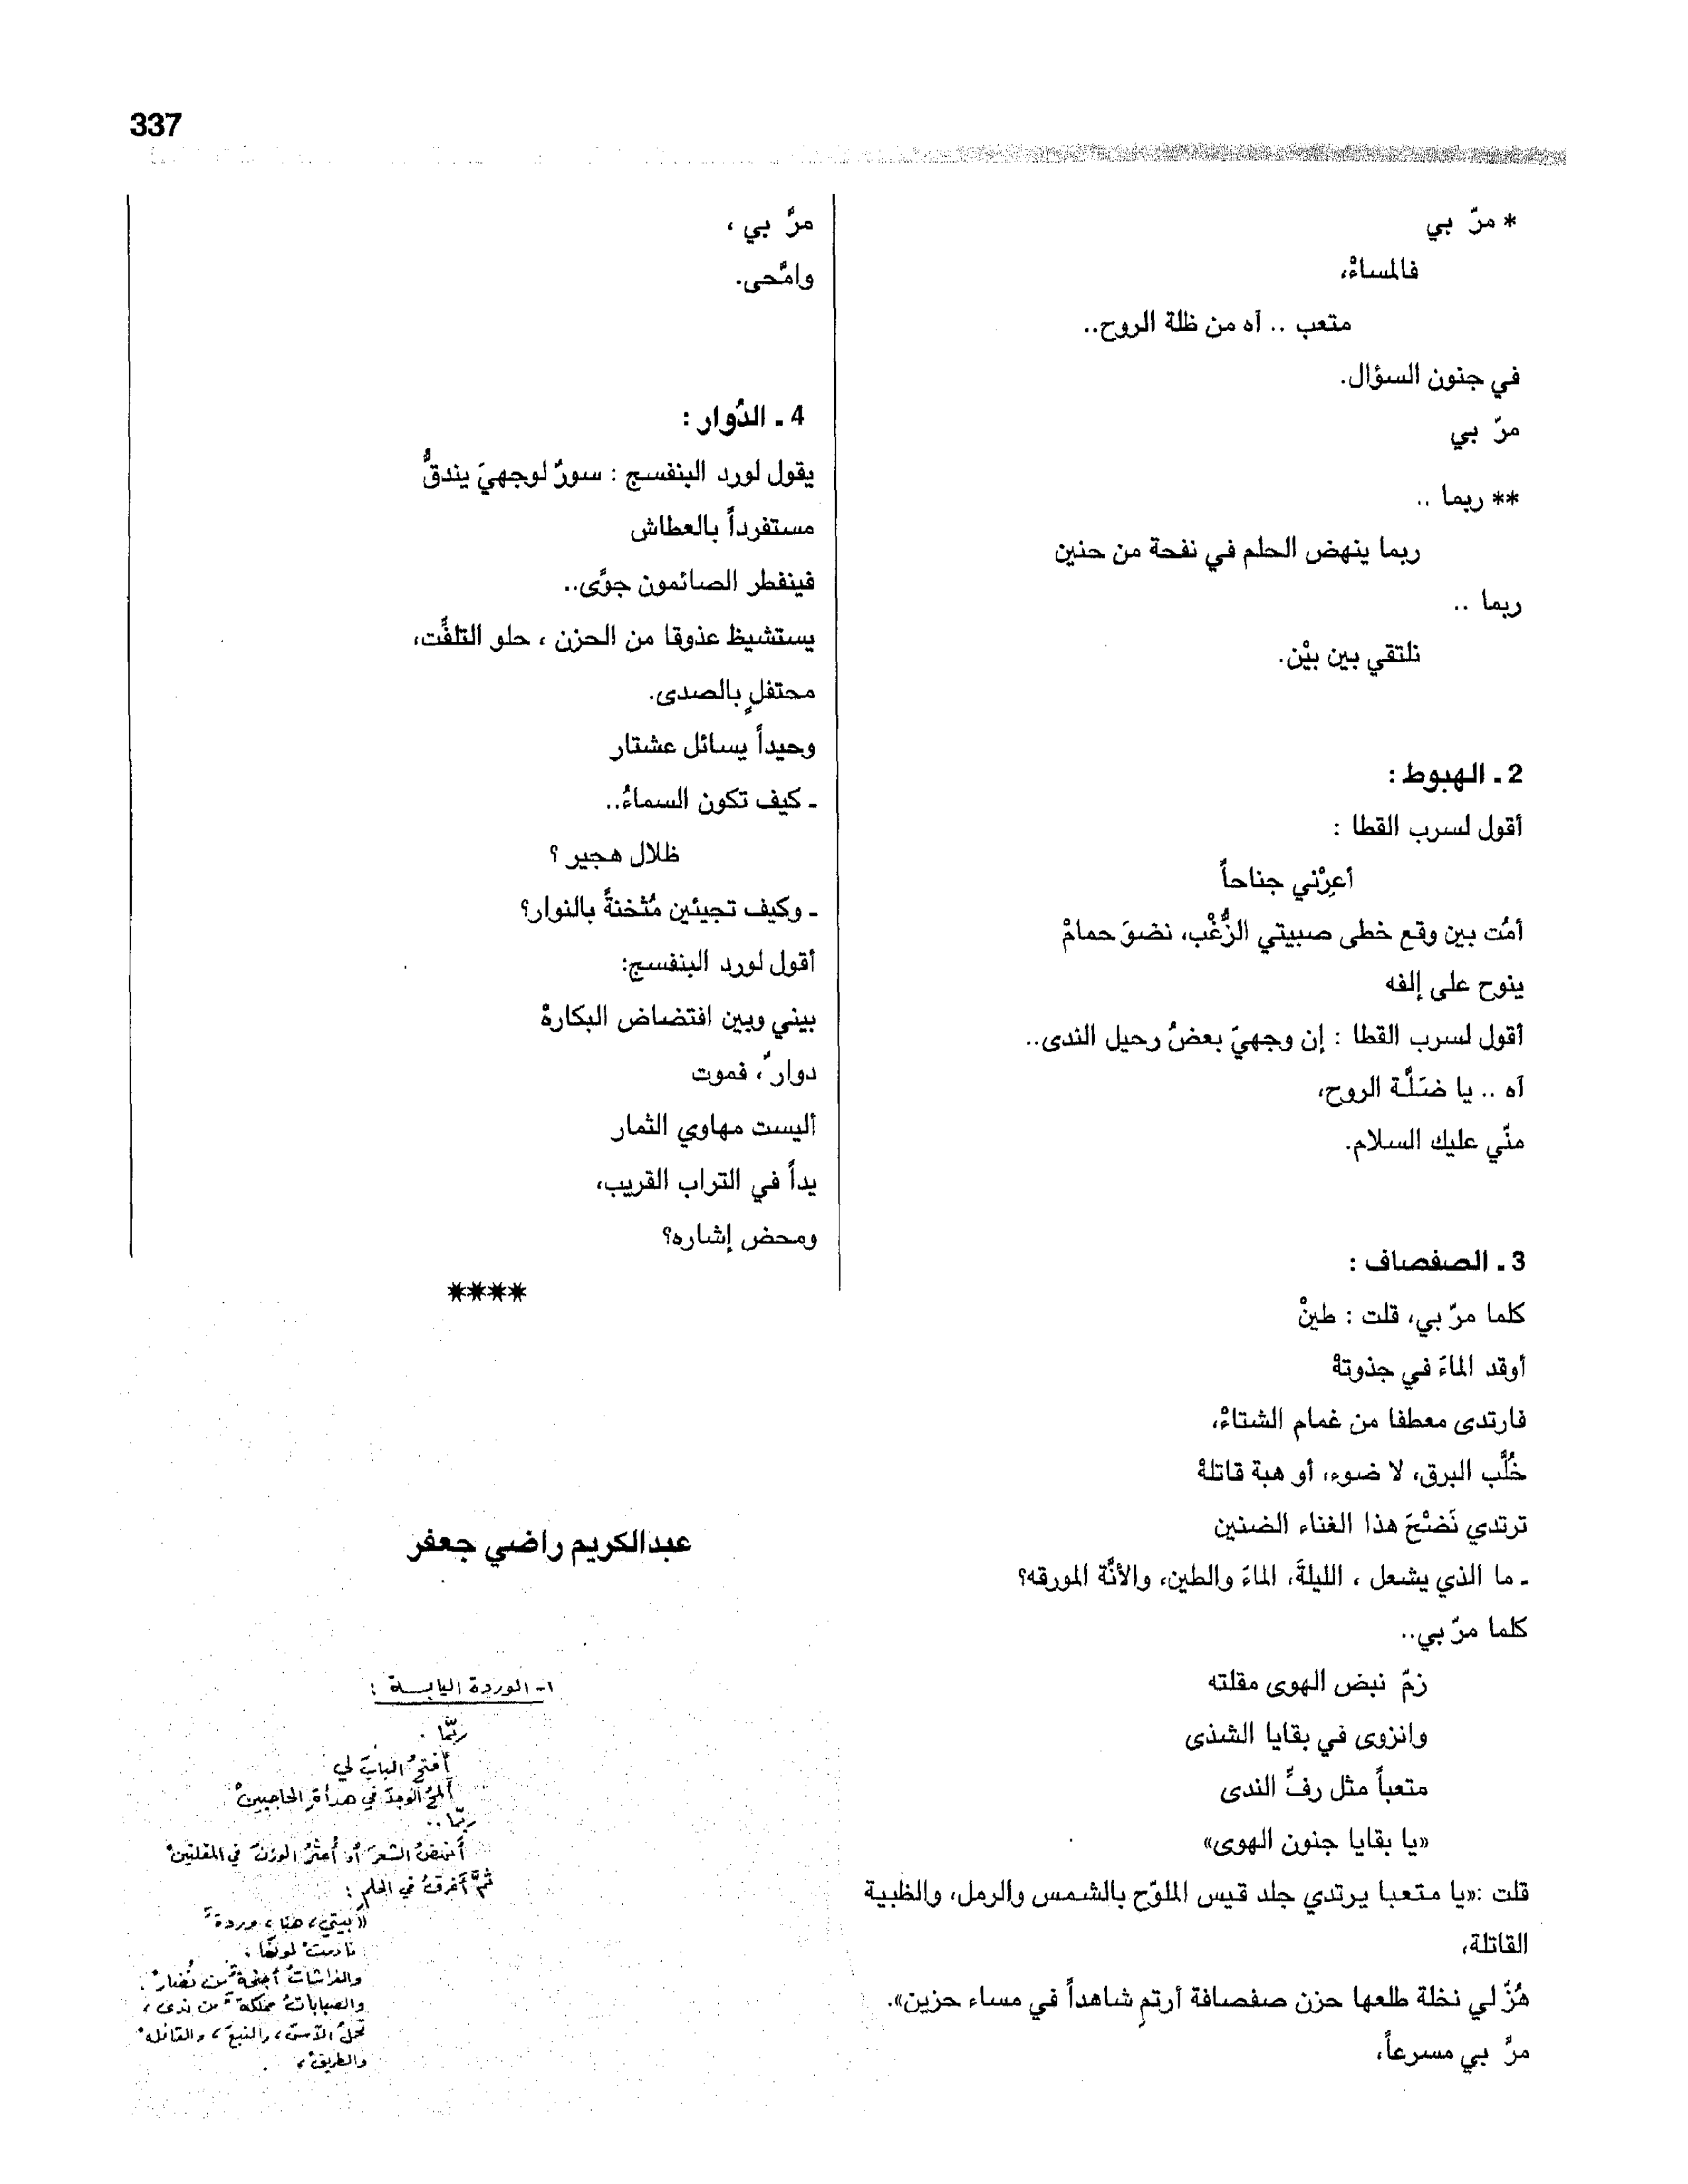 337
* مرّ بي
فالمساءْ،
متعب .. آه من ظلة الروح..
في جنون السؤال.
مرّ بي
** ربما ..
ربما ينهض الحلم في نفحة من حنين
ربما ..
نلتقي بين بيْن.
2 ـ الهبوط :
أقول لسرب القطا :
أعِرْني جناحاً
أمُت بين وقع خطى صبيتي الزُّغْب، نضوَ حمامْ
ينوح على إلفه
أقول لسرب القطا : إن وجهيَ بعضُ رحيل الندى..
آه .. يا ضَلَّة الروح،
منّي عليك السلام.
3 ـ الصفصاف :
كلما مرّ بي، قلت : طينْ
أوقد الماءَ في جذوتهْ
فارتدى معطفا من غمام الشتاءْ،
خُلَّب البرق، لا ضوء، أو هبة قاتلهْ
ترتدي نَضْحَ هذا الغناء الضنين
ـ ما الذي يشعل ، الليلةَ، الماءَ والطين، والأنَّة المورقه؟
كلما مرّ بي..
زمّ نبض الهوى مقلته
وانزوى في بقايا الشذى
متعباً مثل رفِّ الندى
«يا بقايا جنون الهوى»
قلت :«يا متعبا يرتدي جلد قيس الملوّح بالشمس والرمل، والظبية
القاتلة،
هُزّ لي نخلة طلعها حزن صفصافة أرتمِ شاهداً في مساء حزين».
مرَّ بي مسرعاً،
مرَّ بي ،
وامَّحى.
4 ـ الدُوار :
يقول لورد البنفسج : سورٌ لوجهيَ يندقُّ
مستفرداً بالعطاش
فينفطر الصائمون جوًى..
يستشيظ عذوقا من الحزن ، حلو التلفُّت،
محتفلٍ بالصدى.
وحيداً يسائل عشتار
ـ كيف تكون السماءُ..
ظلال هجير ؟
ـ وكيف تجيئين مُثخنةً بالنوار؟
أقول لورد البنفسج:
بيني وبين افتضاض البكارهْ
دوارٌ، فموت
أليست مهاوي الثمار
يداً في التراب القريب،
ومحض إشاره؟
****
عبدالكريم راضي جعفر
١- الوردة اليابسة :
ربّما .
أفتحُ البابَ لي
ألمحُ الوجدَ في هدأةِ الحاجبين
ربّما..
أنبضُ الشعرَ أو أعثرُ الوزنَ في المقلتين
ثمَّ أغرقُ في الحلم :
«بيتي، هنا، وردةٌ
نادمتْ لونها ،
والفراشاتُ أجنحةٌ من نُضارْ
والصباباتُ مملكةٌ من ندى،
نحلُ الآسَ، والنبعَ، والقافلهْ
والطريقْ،